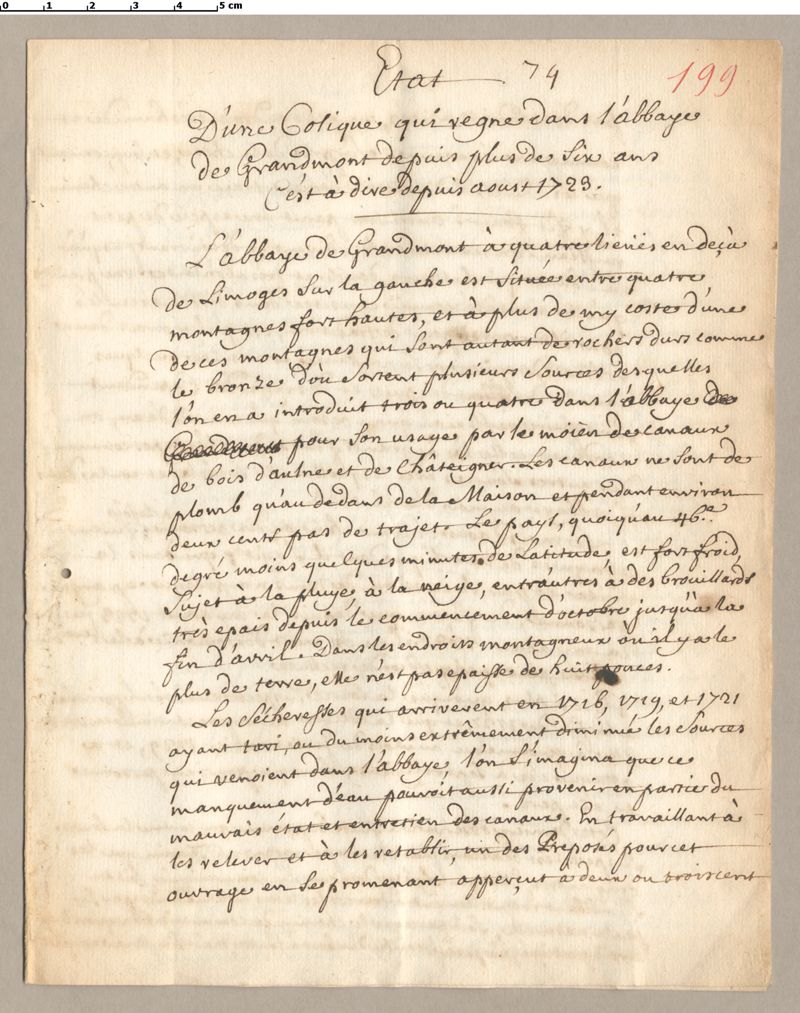 0 1 2 3 4 5 cm
Etat 74 199
D'une Colique qui regne dans l'abbaye
de Grandmont depuis plus de Six ans
C'est à dire depuis aoust 1723.
L'abbaye de Grandmont à quatre lieües en deçà
de Limoges Sur la gauche est Située entre quatre
montagnes fort hautes, et à plus de my coste d'une
de ces montagnes qui Sont autant de rochers durs comme
le bronze d'où Sortent plusieurs Sources desquelles
l'on en a introduit trois ou quatre dans l'abbaye de
pour Son usage par le moïen de canaux
de bois d'aulne et de Châteigner. Les canaux ne Sont de
plomb qu'au dedans de la Maison et pendant environ
deux cents pas de trajet. Le pays, quoiqu'au 46.e
degré moins quelques minutes de Latitude est fort froid,
Sujet à la pluye, à la neige, entr'autres à des brouillards
très epais depuis le commencement d'octobre jusqu'à la
fin d'avril. Dans les endroits montagneux où il y a le
plus de terre, elle n'est pas epaisse de huit pouces.
Les Sécheresses qui arriverent en 1716, 1719, et 1721
ayant tari, ou du moins extrêmement diminué les Sources
qui venoient dans l'abbaye, l'on S'imagina que ce
manquement d'eau pouvoit aussi provenir en partie du
mauvais état et entretien des canaux. En travaillant à
les relever et à les retablir, un des Preposés pour cet
ouvrage en Se promenant apperçut à deux ou trois cent